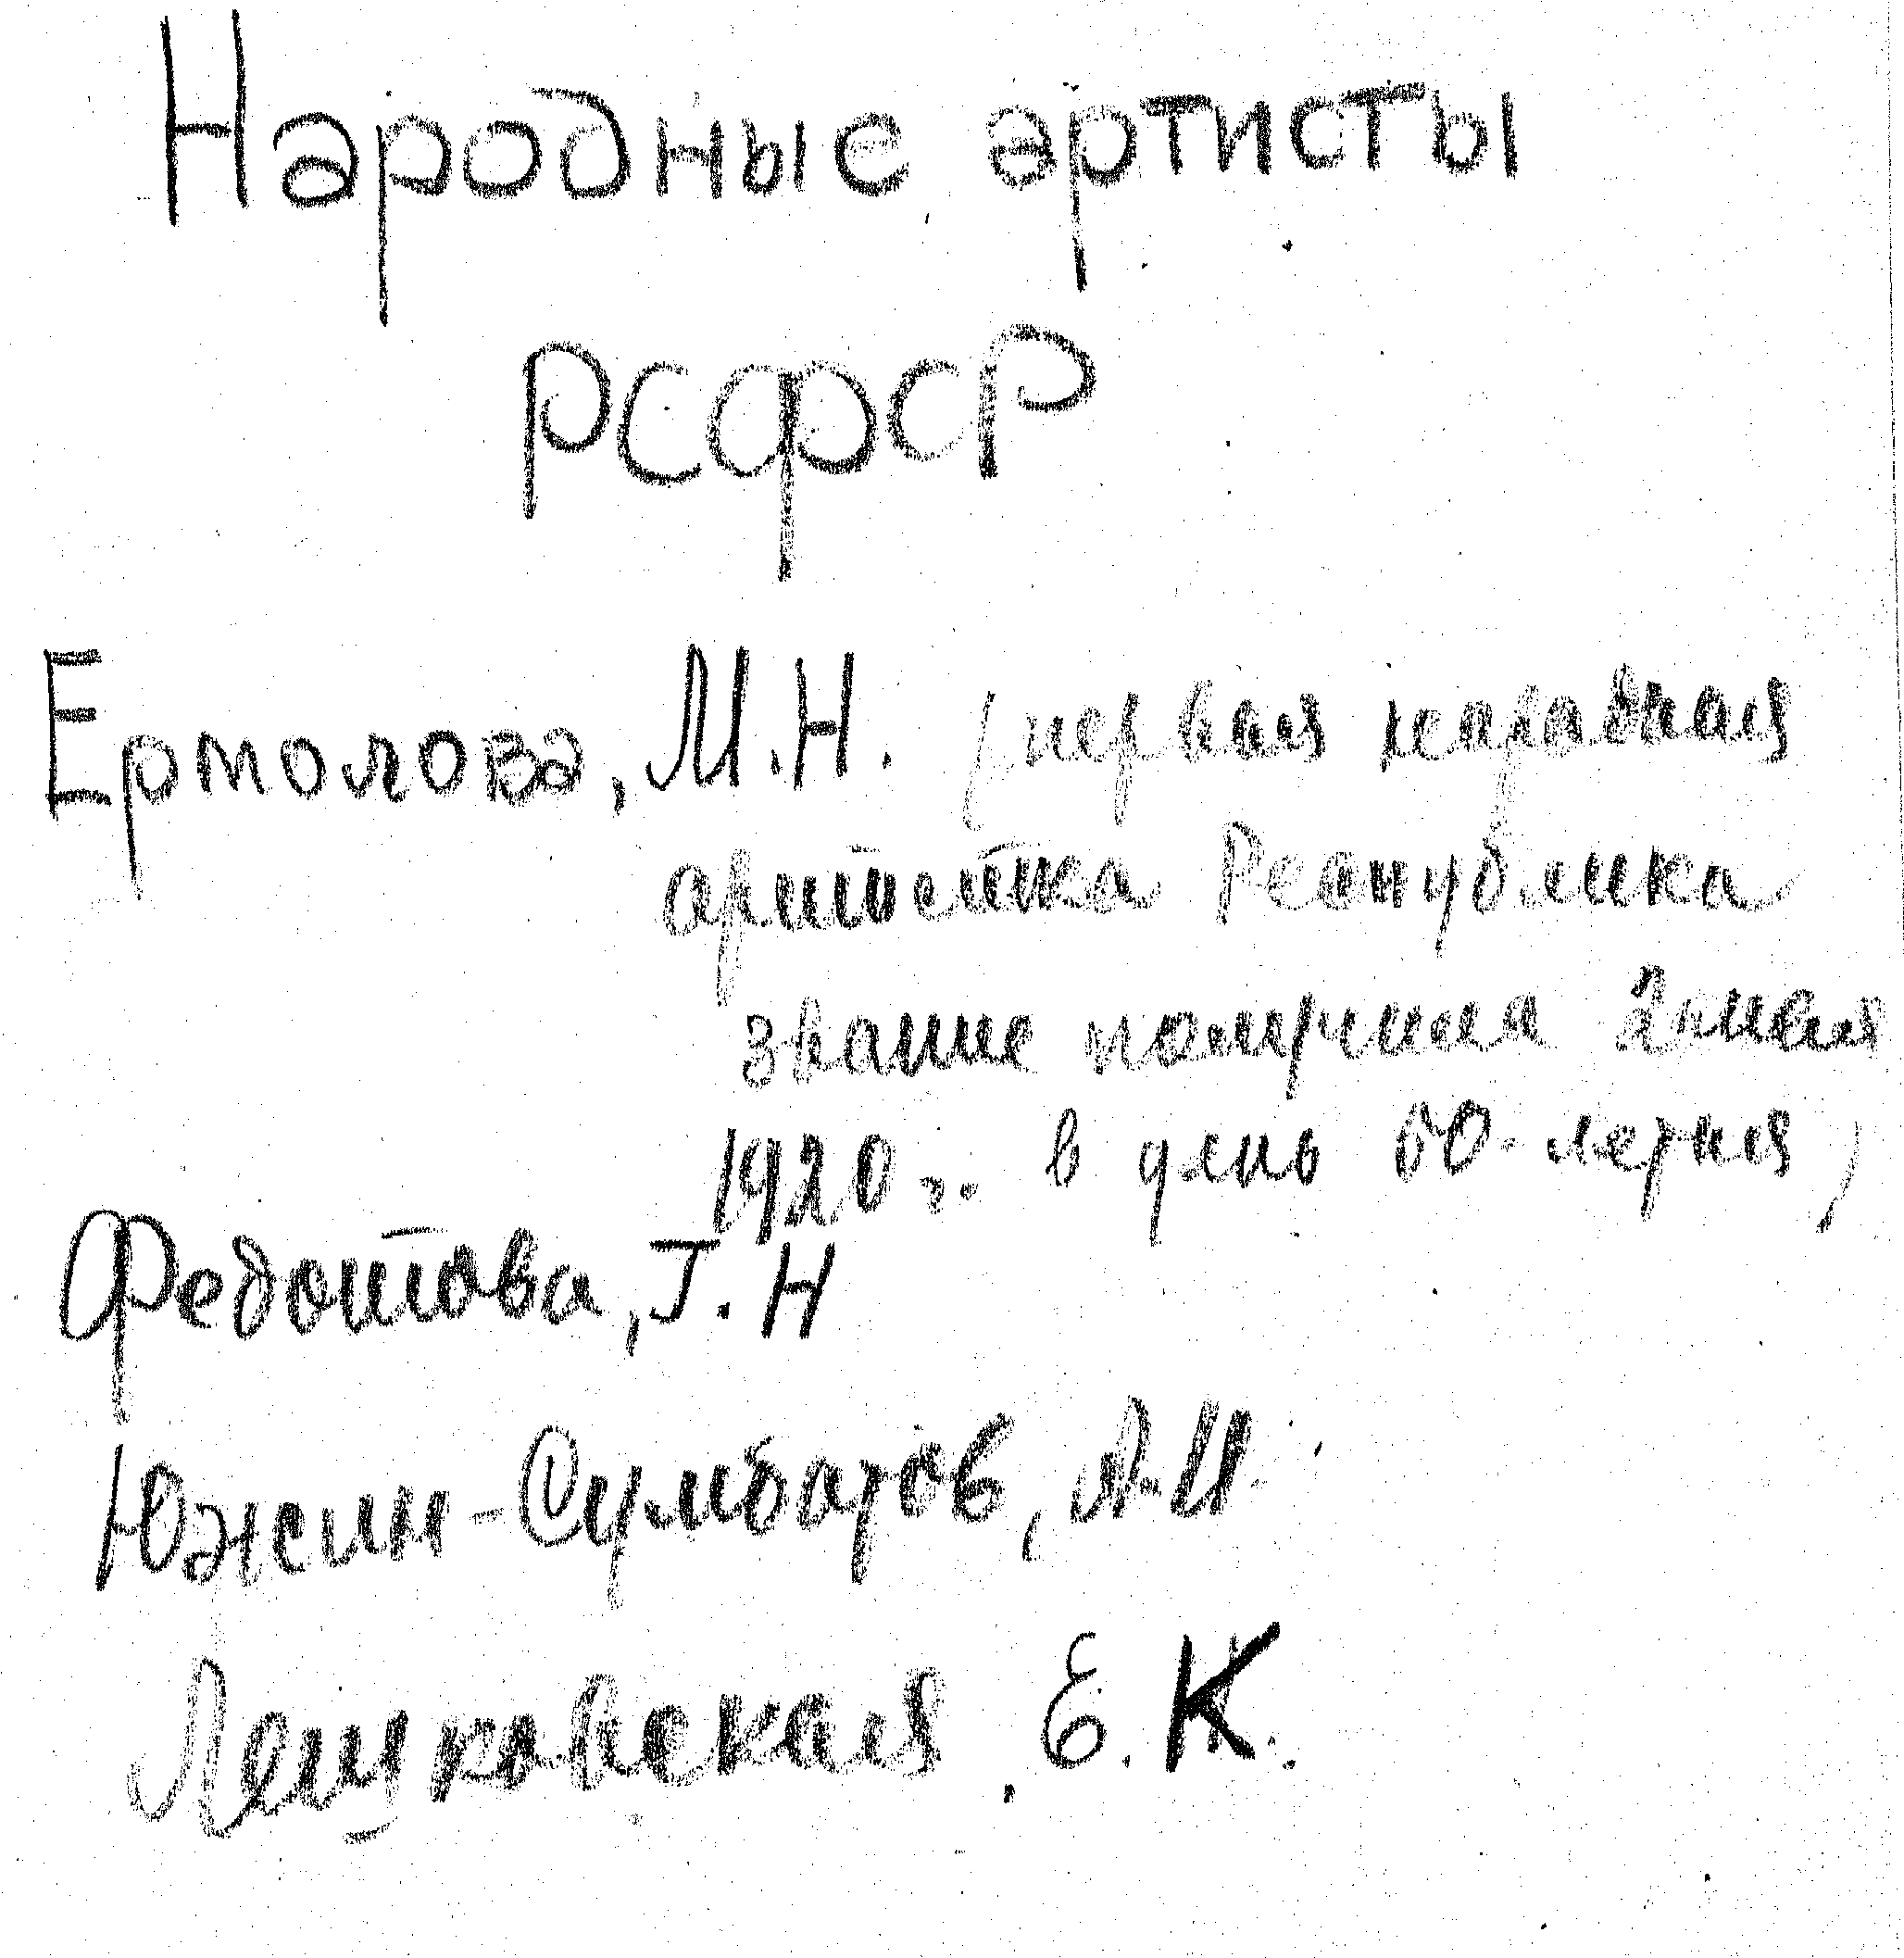 Народные артисты
РСФСР
Ермолова, М.Н. (первая народная
артистка Республика
звание получила 2 июля
1920 г. в день 50-летия)
Федотова, Г. Н
Южин-Сумбатов, А.И.
Лешковская, Е. К.